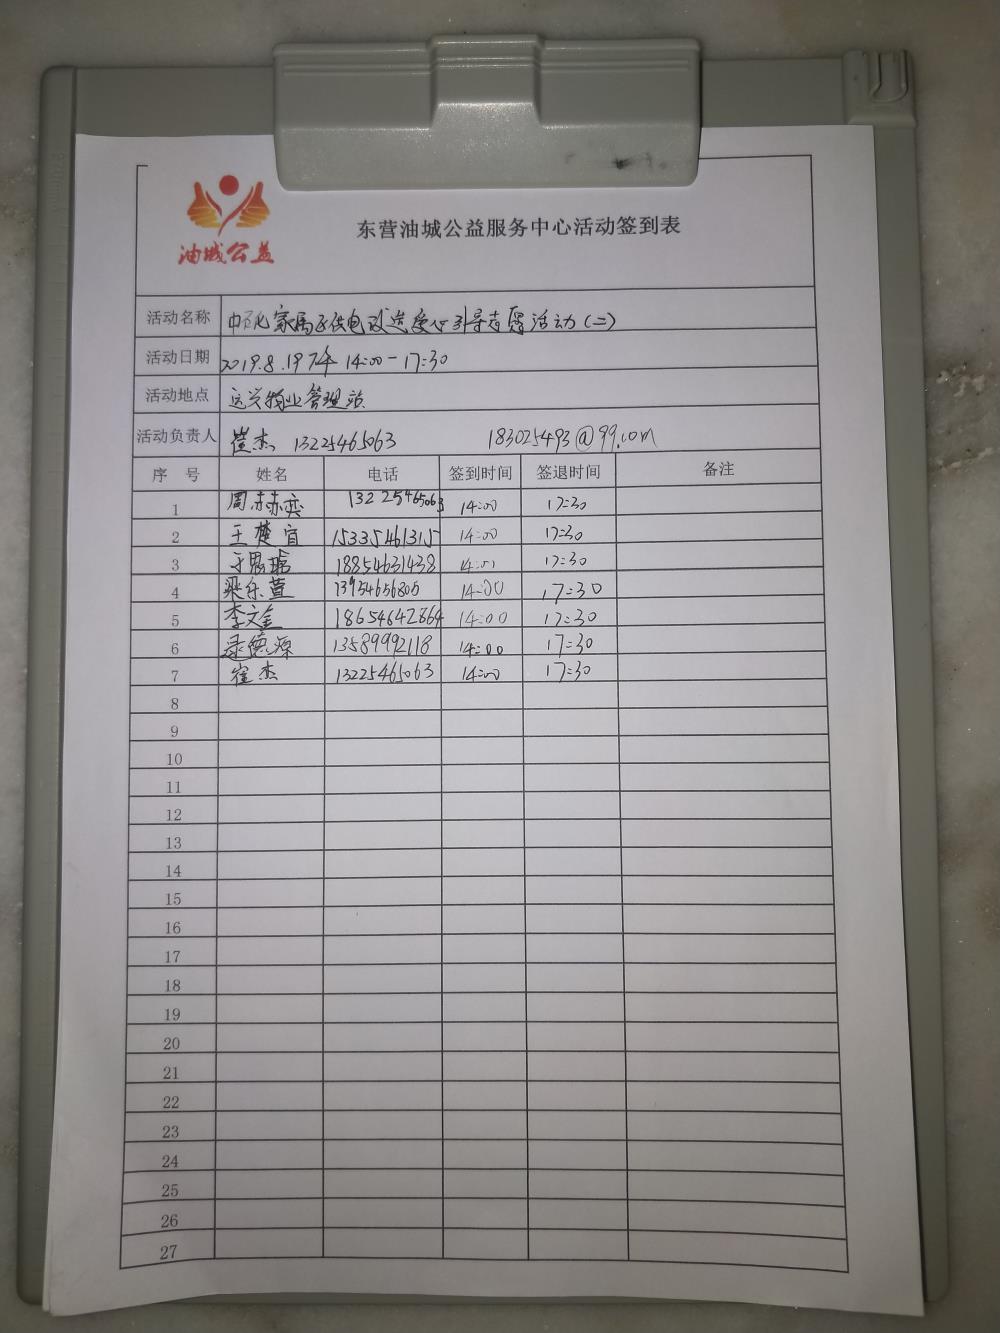 油城公益
东营油城公益服务中心活动签到表
活动名称 家属区供电改造 引导志愿活动(二)
活动日期 2019.8.19 下午 14:00-17:30
活动地点 运兴物业管理站
活动负责人 崔杰 13225465063 183025493@qq.com
序 号 姓名 电话 签到时间 签退时间 备注
1 周赫奕 13225465063 14:00 17:30
2 王楚宜 15335461315 14:00 17:30
3 于思 18854631438 14:00 17:30
4 梁乐萱 13954656805 14:00 17:30
5 李文 18654642864 14:00 17:30
6 德源 13589992118 14:00 17:30
7 崔杰 13225465063 14:00 17:30
8
9
10
11
12
13
14
15
16
17
18
19
20
21
22
23
24
25
26
27